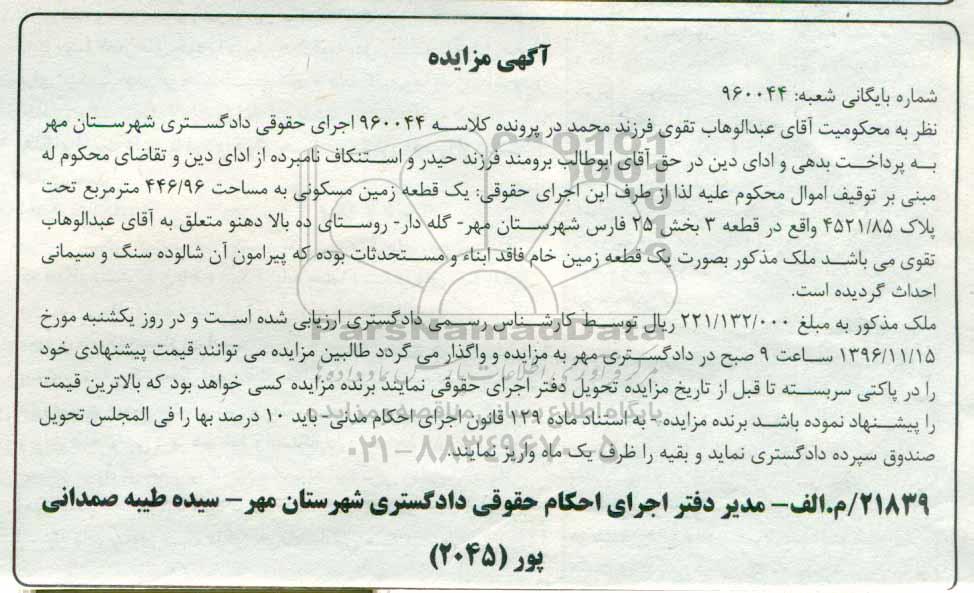 آگهی مزایده
شماره بایگانی شعبه: ۹۶۰۰۴۴
نظر به محکومیت آقای عبدالوهاب تقوی فرزند محمد در پرونده کلاسه ۹۶۰۰۴۴ اجرای حقوقی دادگستری شهرستان مهر
به پرداخت بدهی و ادای دین در حق آقای ابوطالب برومند فرزند حیدر و استنکاف نامبرده از ادای دین و تقاضای محکوم له
مبنی بر توقیف اموال محکوم علیه لذا از طرف این اجرای حقوقی: یک قطعه زمین مسکونی به مساحت ۴۴۶/۹۶ مترمربع تحت
پلاک ۴۵۲۱/۸۵ واقع در قطعه ۳ بخش ۲۵ فارس شهرستان مهر- گله دار- روستای ده بالا دهنو متعلق به آقای عبدالوهاب
تقوی می باشد ملک مذکور بصورت یک قطعه زمین خام فاقد ابناء و مستحدثات بوده که پیرامون آن شالوده سنگ و سیمانی
احداث گردیده است.
ملک مذکور به مبلغ ۲۲۱/۱۳۲/۰۰۰ ریال توسط کارشناس رسمی دادگستری ارزیابی شده است و در روز یکشنبه مورخ
۱۳۹۶/۱۱/۱۵ ساعت ۹ صبح در دادگستری مهر به مزایده و واگذار می گردد طالبین مزایده می توانند قیمت پیشنهادی خود
را در پاکتی سربسته تا قبل از تاریخ مزایده تحویل دفتر اجرای حقوقی نمایند برنده مزایده کسی خواهد بود که بالاترین قیمت
را پیشنهاد نموده باشد برنده مزایده - به استناد ماده ۱۲۹ قانون اجرای احکام مدنی- باید ۱۰ درصد بها را فی المجلس تحویل
صندوق سپرده دادگستری نماید و بقیه را ظرف یک ماه واریز نمایند.
۲۱۸۳۹/م.الف- مدیر دفتر اجرای احکام حقوقی دادگستری شهرستان مهر – سیده طیبه صمدانی
پور (۲۰۴۵)
ParsNamadData
پایگاه اطلاع رسانی مناقصه و مزایده
۰۲۱-۸۸۳۴۹۶۷۰-۵